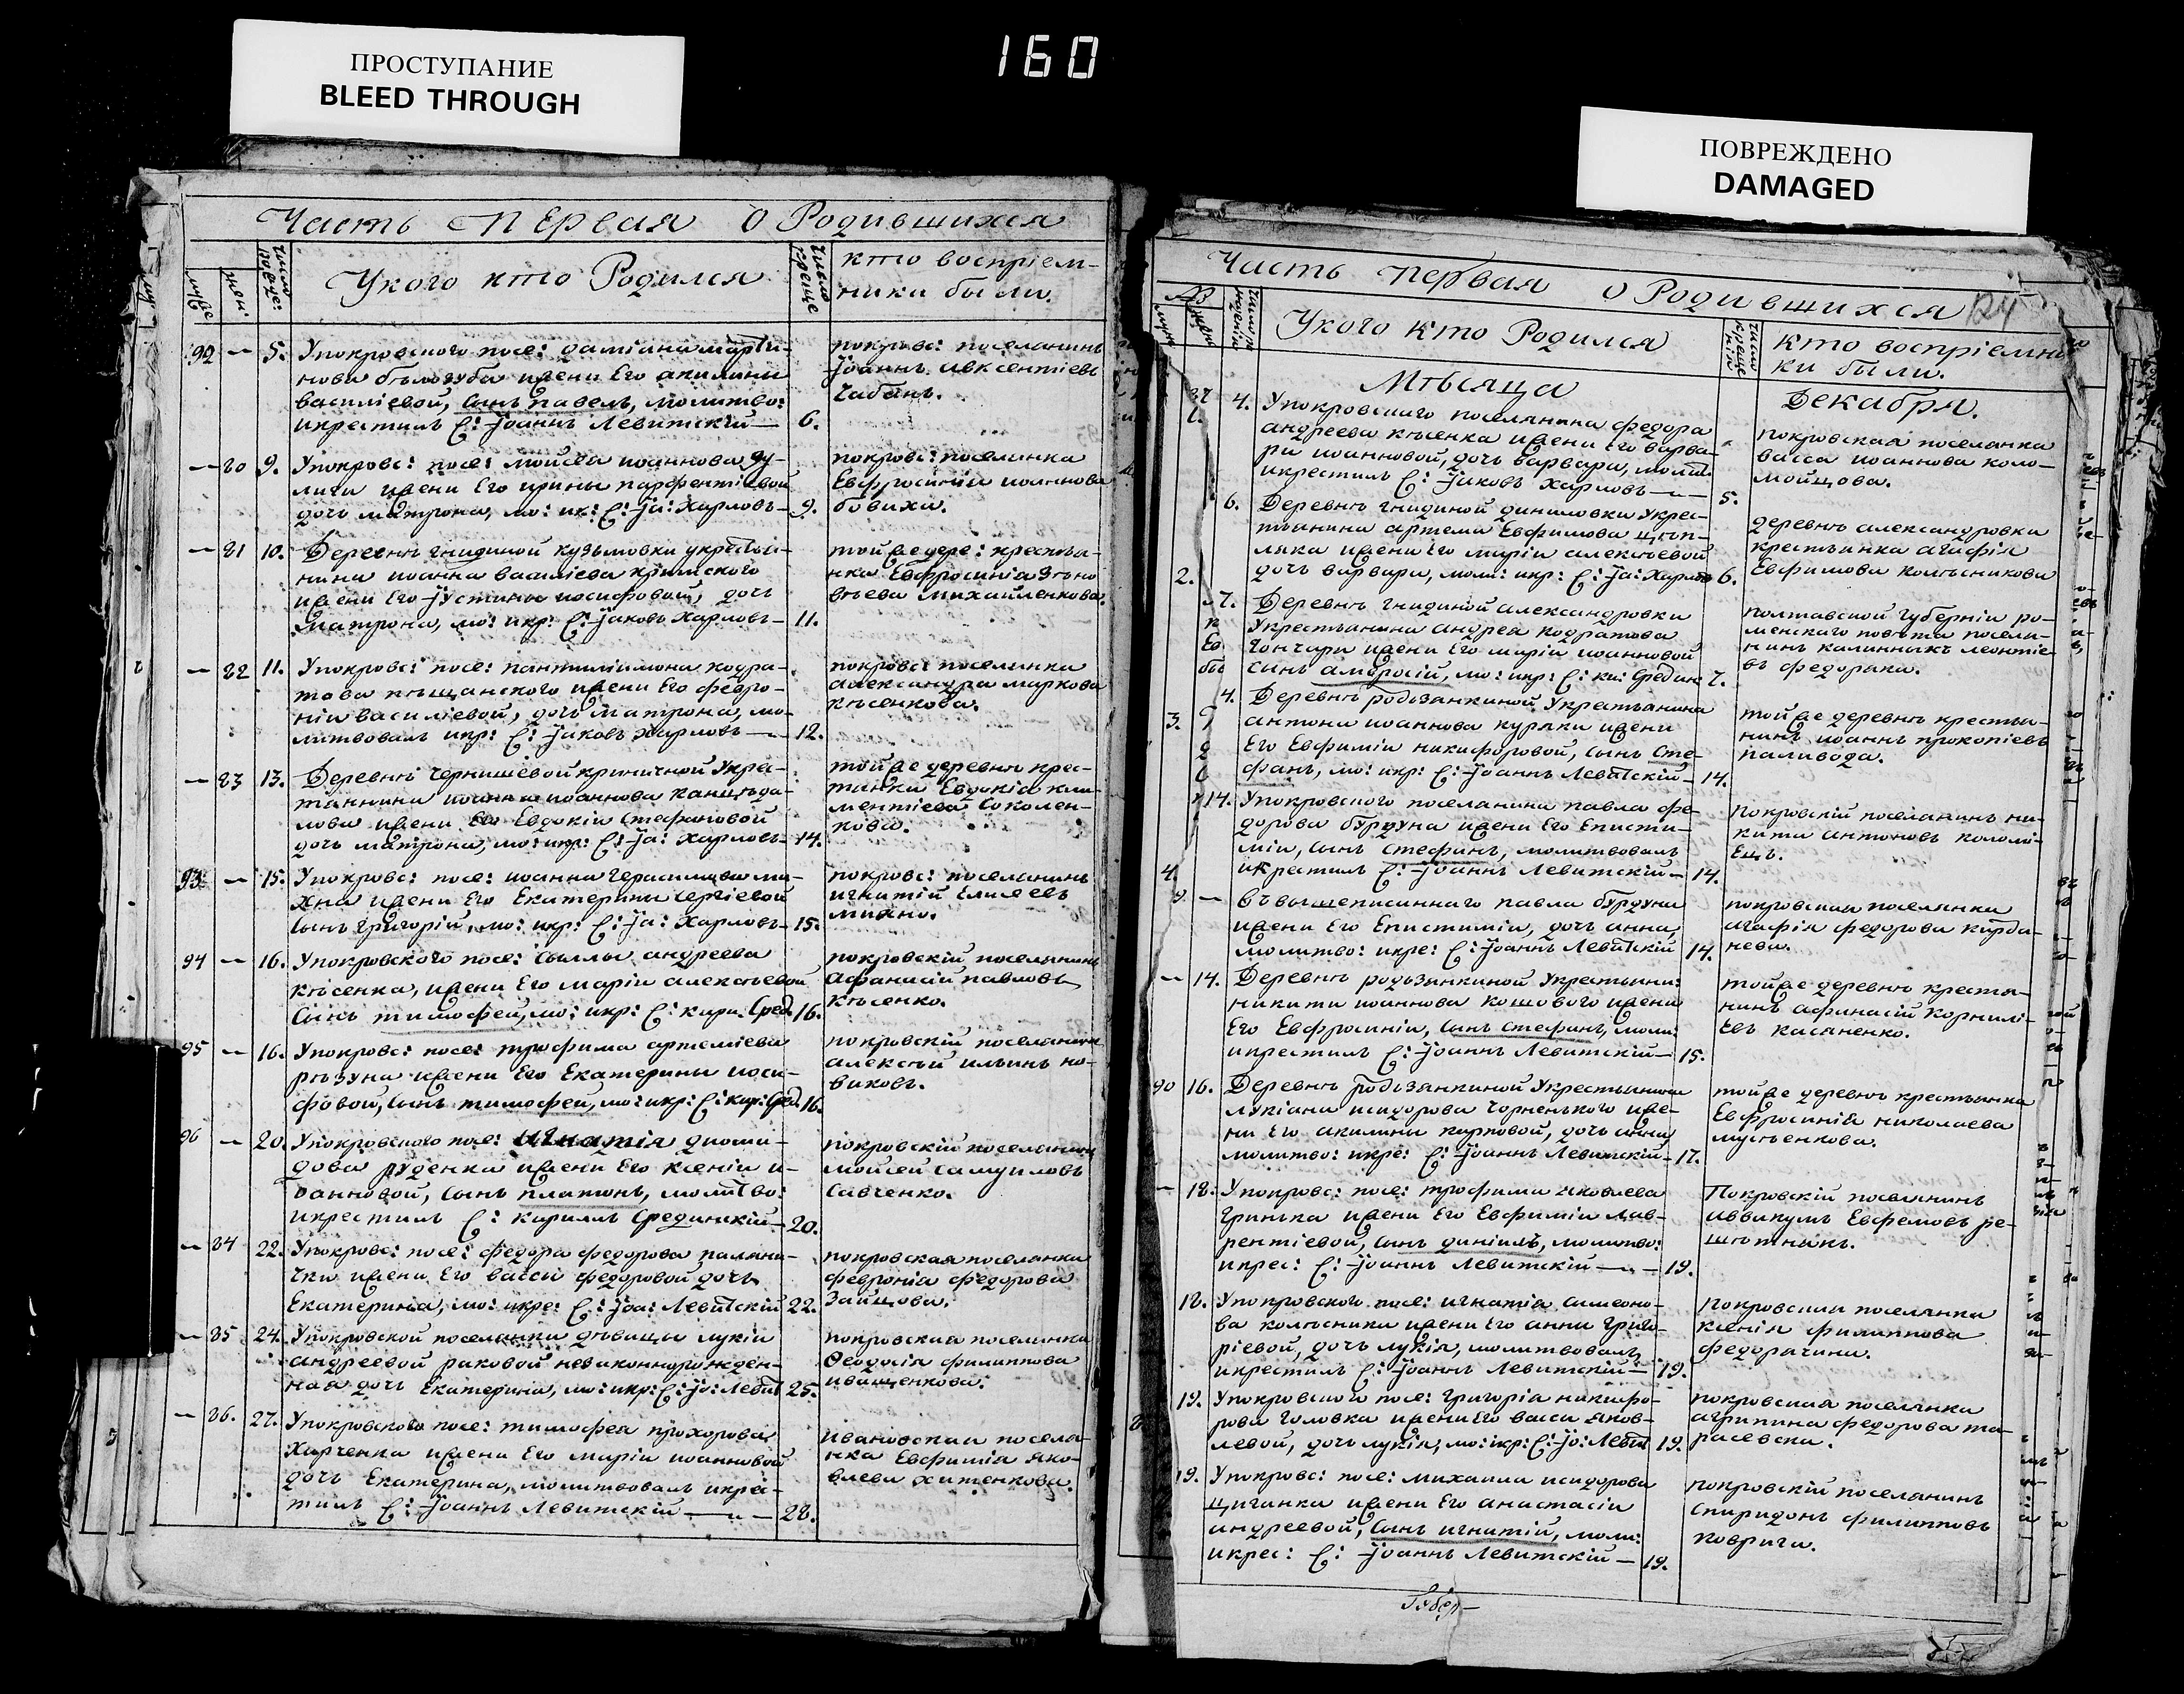 ПРОСТУПАНИЕ
BLEED THROUGH
160
ПОВРЕЖДЕНО
DAMAGED
Часть Первая О Родившихся
Укого кто Родился
кто воспріем-
ники были.
92 — 5. Упокровского посе: даміана марти-
нова бѣлозуба ижени Его акилини
василіевой, сынъ павелъ, молитво:
икрестилъ С: Іоаннъ Левитскій — 6.
покровс: поселанинъ
Іоаннъ авксентіевъ
Чабанъ.
— 80 9. Упокровс: посе: мойсеа иоаннова
ижени Его ирины парфентіевой
дочь матрона, мо: икр: С: Іа: Харловъ — 9.
покровс: поселанка
Евфросиніа иоаннова
бовиха.
— 81 10. Деревнѣ гнидиной кузьмовки укрестьа-
нина иоанна василіева кримского
ижени Его Іустины иосифовой, дочь
матрона, мо: икр: С: Іаковъ Харловъ — 11.
тойже дере: крестьа-
нка Евфросиніа Зѣно
вѣева михайленкова.
— 82 11. Упокровс: посе: пантилімона кодра-
това пѣщанского ижени Его февро-
ніи василіевой, дочь матрона, мо-
литвовалъ икр: С: Іаковъ Харловъ — 12.
покровс: поселанка
александра маркова
кѣсенкова.
— 83 13. Деревнѣ Чернишевой криничной Укре-
танина иоанна иоаннова
лова ижени Его Евдокіи Стефановой
дочь матрона, мо: икр: С: Іа: Харловъ — 14.
тойже деревнѣ крес-
тинка Евдокіа кли-
ментіева Соколен-
кова.
93 — 15. Упокровс: посе: иоанна Герасимова ми-
хна ижени Его Екатерины сергіевой
сынъ григорій, мо: икр: С: Іа: Харловъ — 15.
покровс: поселанинъ
игнатій Елисеевъ
михно.
94 — 16. Упокровского посе: Сыллы андреева
кѣсенка, ижени Его маріи алексѣевой
Сынъ тимофей, мо: икр: С: кири: Сред. 16.
покровскій поселанинъ
Афанасій павловъ
кѣсенко.
95 — 16. Упокровс: посе: трофима артеміева
рѣзуна ижени Его Екатерины иоси-
фовой, сынъ тимофей, мо: икр: С: кир: Сред. 16.
покровскій поселанинъ
алексѣй ильинъ но-
виковъ.
96 — 20. Упокровского посе: игнатія диоми-
дова руденка ижени Его ксеніи и-
оанновой, сынъ платонъ, молитво:
икрестилъ С: кирилъ Срединскій — 20.
покровскій поселанинъ
мойсей самуиловъ
Савченко.
— 84 22. Упокровс: посе: федора федорова палани-
чки ижени Его васси федоровой дочь
Екатерина, мо: икре: С: Іоа: Левитскій 22.
покровская поселанка
февроніа федорова
Зайцова.
— 85 24. Упокровской поселанки дѣвици лукіи
андреевой раковой незаконнорожден-
ная дочь Екатерина, мо: икр: С: Іо: Левит 25.
покровская поселанка
Феодосія филиппова
иващенкова.
— 86. 27. Упокровского посе: тимофеа прохорова
Харченка ижени Его маріи иоанновой
дочь Екатерина, молитвовалъ икре-
тилъ С: Іоаннъ Левитскій — 28.
ивановская посела-
нка Евфиміа яко-
влева хименкова.
Часть первая О Родившихся
Укого кто Родился
кто воспріемни
ки были.
Мѣсяца Декабря.
4. Упокровского поселанина федора
андреева кѣсенка ижени Его варва-
ри иоанновой, дочь варвара, молит:
икрестилъ С: Іаковъ Харловъ — 5.
покровская поселанка
васса иоаннова коло-
мойцова.
6. Деревнѣ гнидиной даниловки укрес-
тьянина артема Евфимова
ижени Его маріи алексѣевой
дочь варвара, моли: икр: С: Іа: Харловъ 6.
деревнѣ александровки
крестьянка агафія
Евфимова колѣсникова
7. Деревнѣ гнидиной александровки
Укрестьянина андрея кодратова
гончара ижени Его маріи иоанновой
сынъ амвросій, мо: икр: С: ки: Средин 7.
полтавской губерніи ро-
менского повѣта посела-
нинъ калинникъ леонтіе-
въ федорака.
4. Деревнѣ родзянкиной Укрестьянина
антона иоаннова куряки ижени
Его Евфиміи никифоровой, сынъ Сте-
фанъ, мо: икр: С: Іоаннъ Левитскій — 14.
тойже деревнѣ крестья-
нинъ иоаннъ прокопіевъ
паливода.
14. Упокровского поселанина павла фе-
дорова бурдуна ижени Его Еписти-
міи, сынъ Стефанъ, молитвовалъ
икрестилъ С: Іоаннъ Левитскій — 14.
Покровскій поселанинъ ни-
кита антоновъ коломі-
Ецъ.
— Въ вышеписаннаго павла бурдуна
ижени Его Епистиміи, дочь анна,
молитво: икре: С: Іоаннъ Левитскій 14.
покровская поселанка
агафія федорова
— 14. Деревнѣ родзянкиной Укрестьяни:
никити иоаннова кошового ижени
Его Евфросиніи, сынъ Стефанъ, моли:
икрестилъ С: Іоаннъ Левитскій — 15.
тойже деревнѣ крестья-
нинъ афанасій Корнилі-
Евъ касяненко.
90 16. Деревнѣ родзянкиной Укрестьянина
лукіана исидорова чорненького иже-
ни Его акилини карповой, дочь анна
молитво: икре: С: Іоаннъ Левитскій — 17.
тойже деревнѣ крестьянка
Евфросинія николаева
мусѣенкова.
— 18. Упокровс: посе: трофима яковлева
гринька ижени Его Евфиміи лав-
рентіевой, сынъ даніилъ, молитво:
икрес: С: Іоаннъ Левитскій — 19.
Покровскій поселанинъ
аввакумъ Евфемовъ ре-
шѣтникъ.
18. Упокровского посе: игнатія симеоно-
ва колѣсника ижени Его анни григо-
ріевой, дочь лукія, молитвовалъ
икрестилъ С: Іоаннъ Левитскій — 19.
покровская поселанка
ксенія филиппова
федорачина.
19. Упокровского посе: григорія никифо-
рова головка ижени Его васси яков-
левой, дочь лукія, мо: икр: С: Іо: Левит 19.
покровская поселанка
агрипина федорова та-
расевска.
19. Упокровс: посе: михаила исидорова
циганка ижени Его анастасіи
андреевой, сынъ игнатій, моли:
икрес: С: Іоаннъ Левитскій — 19.
покровскій поселанинъ
спиридонъ филипповъ
коврига.